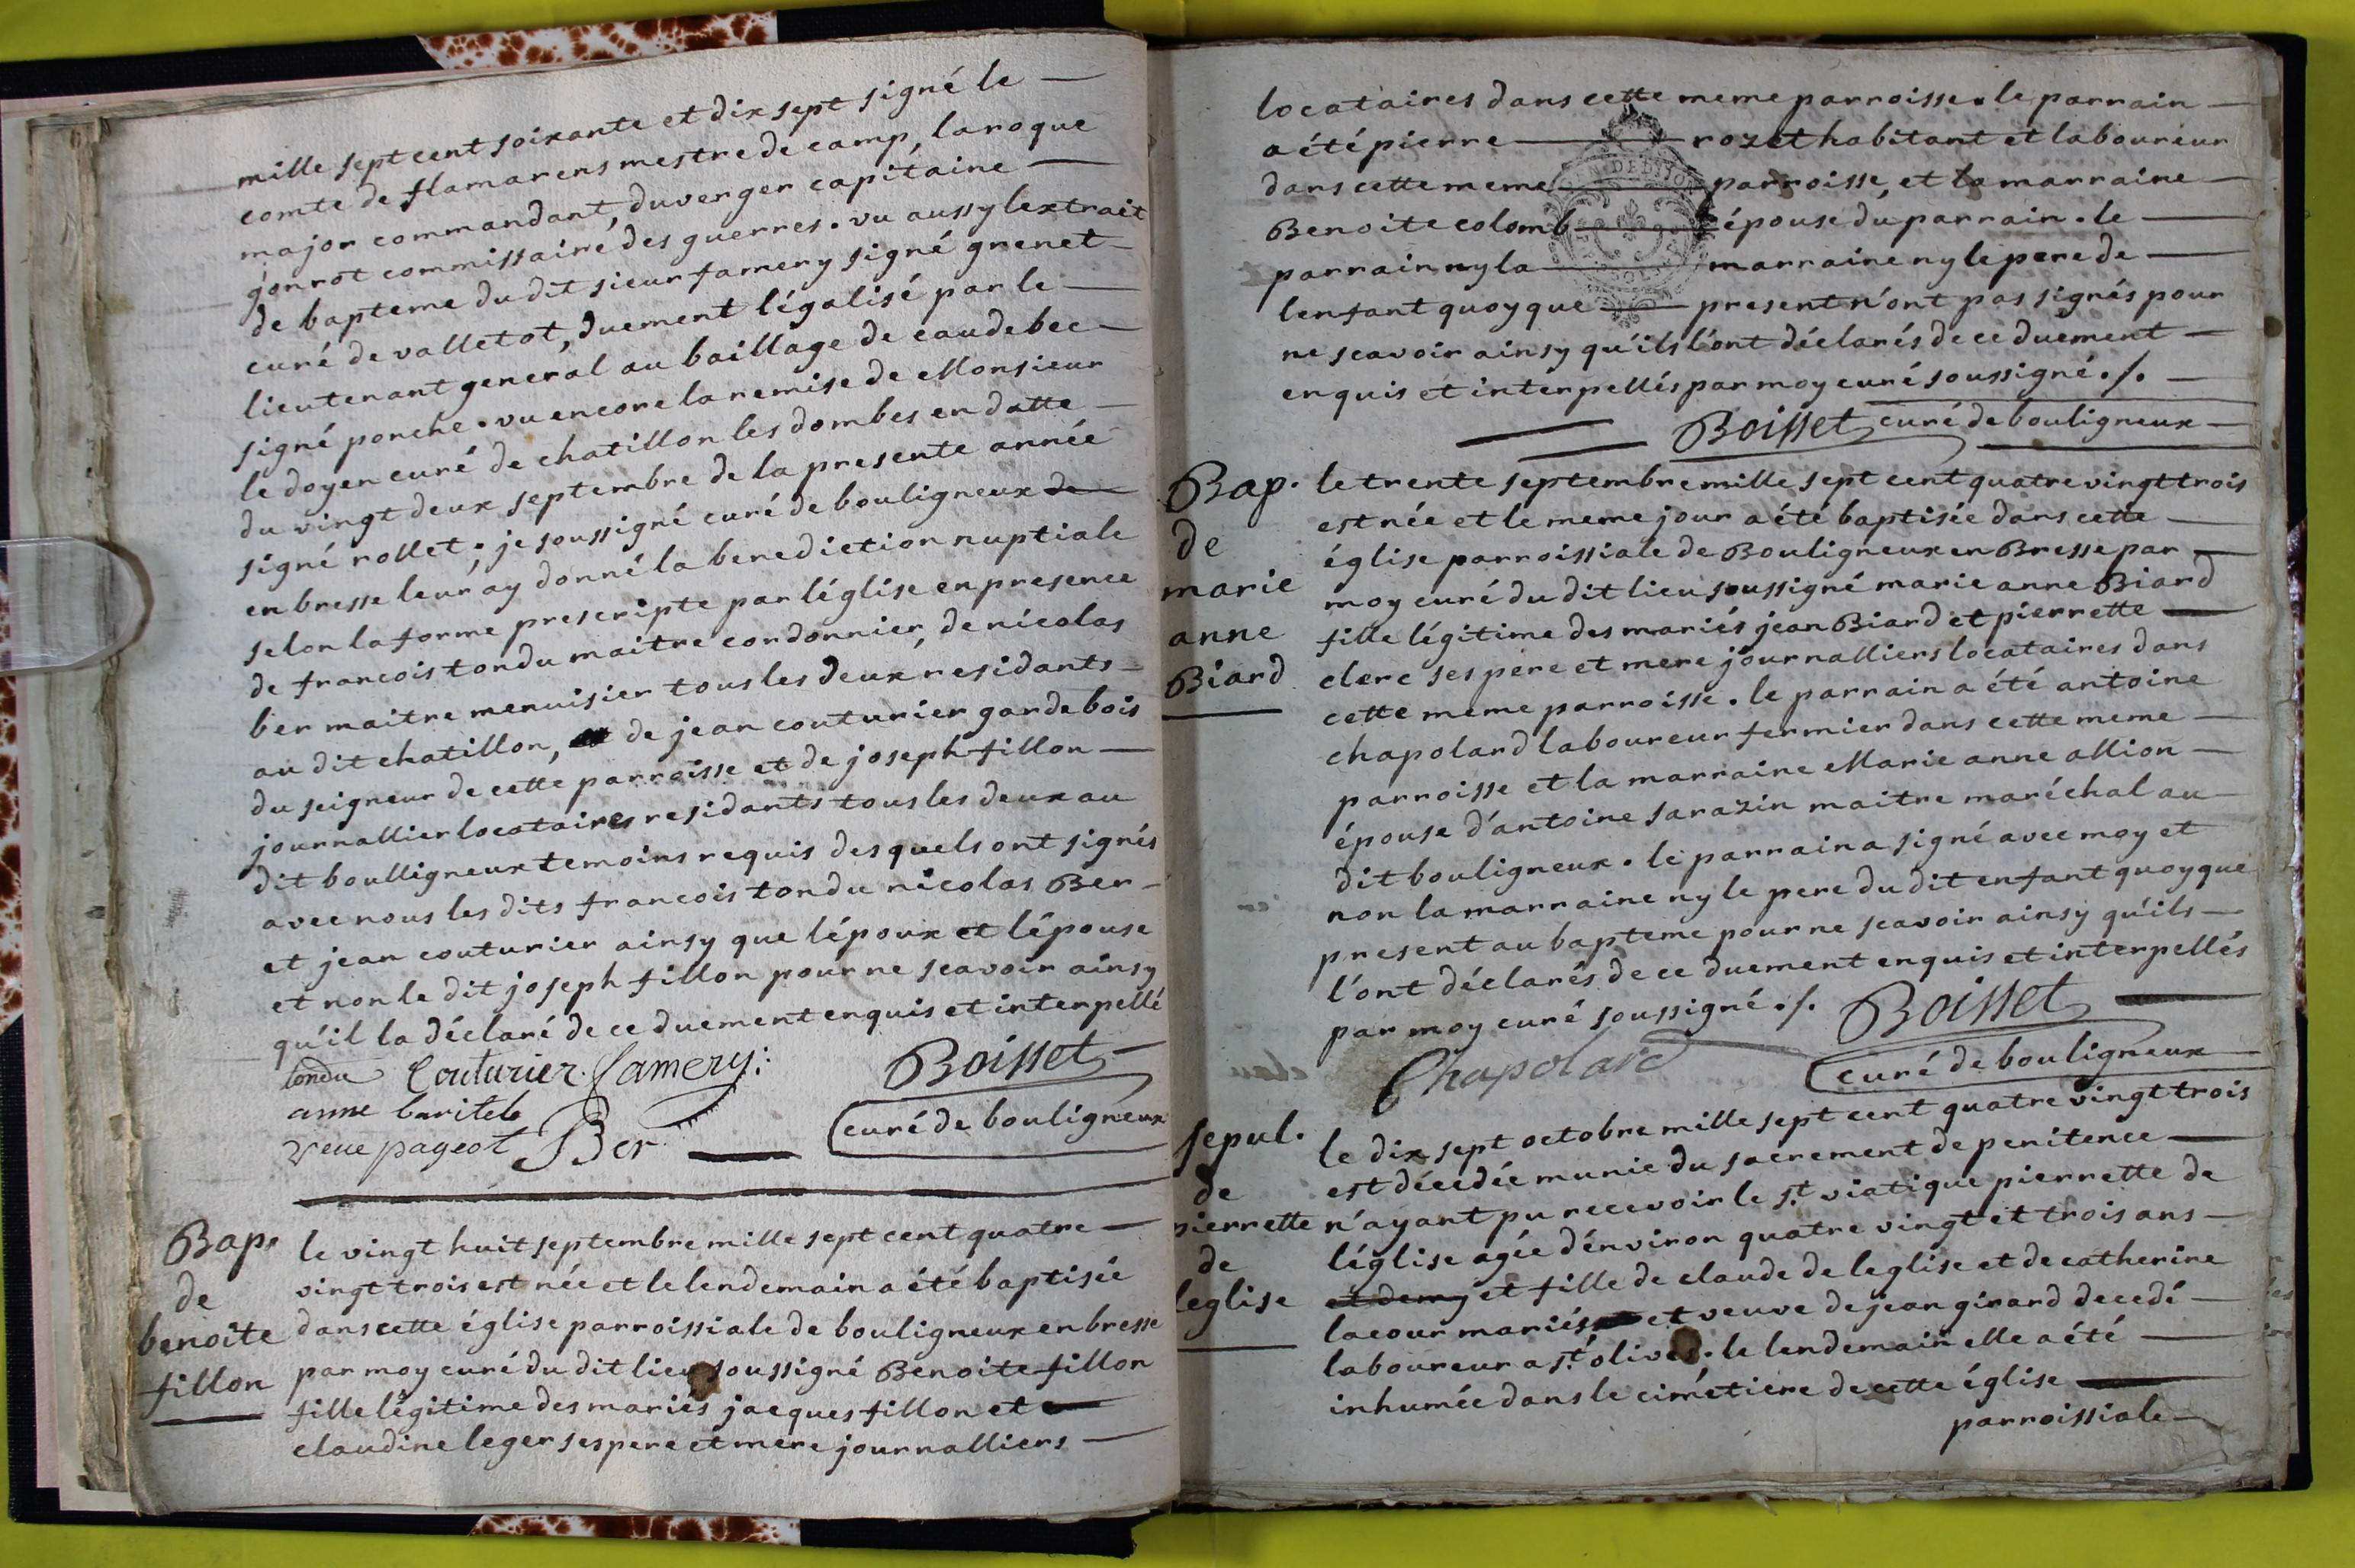 mille sept cent soixante et dix sept signé le
comte de flamarens mestre de camp, laroque
major commandant, duverger capitaine
gonrot commissaire des guerres. vu aussy lextrait
de bapteme du dit sieur famery signé grenet
curé de valletot, duement légalisé par le
lieutenant general au baillage de caudebec
signé porche. vu encore la remise de Monsieur
le doyen curé de chatillon les dombes en datte
du vingt deux septembre de la presente année
signé rollet; je soussigné curé de bouligneux de
en bresse leur ay donné la benediction nuptiale
selon la forme prescripte par léglise en presence
de francois tondu maitre cordonnier, de nicolas
ber maitre menuisier tous les deux residants
au dit chatillon, de jean couturier garde bois
du seigneur de cette parroisse et de joseph fillon
journallier locataires residants tous les deux au
dit boulligneux temoins requis des quels ont signés
avec nous les dits francois tondu nicolas Ber
et jean couturier ainsy que lépoux et lépouse
et non le dit joseph fillon pour ne scavoir ainsy
qu'il la déclaré de ce duement enquis et interpellé
tondu Couturier famery: Boisset
anne
veue pageot Ber curé de bouligneux
Bap. de benoite fillon
le vingt huit septembre mille sept cent quatre
vingt trois est née et le lendemain a été baptisée
dans cette église parroissiale de bouligneux en bresse
par moy curé du dit lieu soussigné Benoite fillon
fille légitime des mariés jacques fillon et
claudine leger ses pere et mere journalliers
locataires dans cette meme parroisse. le parrain
a été pierre rozet habitant et laboureur
dans cette meme parroisse, et la marraine
Benoite colomb épouse du parrain. le
parrain ny la marraine ny le pere de
lenfant quoyque present n'ont pas signés pour
ne scavoir ainsy qu'ils l'ont déclarés de ce duement
enquis et interpellés par moy curé soussigné ./.
Boisset curé de bouligneux
Bap. de marie anne Biard
le trente septembre mille sept cent quatre vingt trois
est née et le meme jour a été baptisée dans cette
église parroissiale de Bouligneux en Bresse par
moy curé du dit lieu soussigné marie anne Biard
fille légitime des mariés jean Biard et pierrette
clerc ses pere et mere journalliers locataires dans
cette meme parroisse. le parrain a été antoine
chapolard laboureur fermier dans cette meme
parroisse et la marraine Marie anne allion
épouse d'antoine sarazin maitre maréchal au
dit bouligneux. le parrain a signé avec moy et
non la marraine ny le pere du dit enfant quoyque
present au bapteme pour ne scavoir ainsy qu'ils
l'ont déclarés de ce duement enquis et interpellés
par moy curé soussigné ./. Boisset
Chapolard curé de bouligneux
sepul. de pierrette de leglise
le dix sept octobre mille sept cent quatre vingt trois
est décedée munie du sacrement de penitence
n'ayant pu recevoir le st viatique pierrette de
léglise agée d'environ quatre vingt et trois ans
et demy et fille de claude de leglise et de catherine
lacour mariés et veuve de jean girard decedé
laboureur a st olives. le lendemain elle a été
inhumée dans le cimetiere de cette église
parroissiale